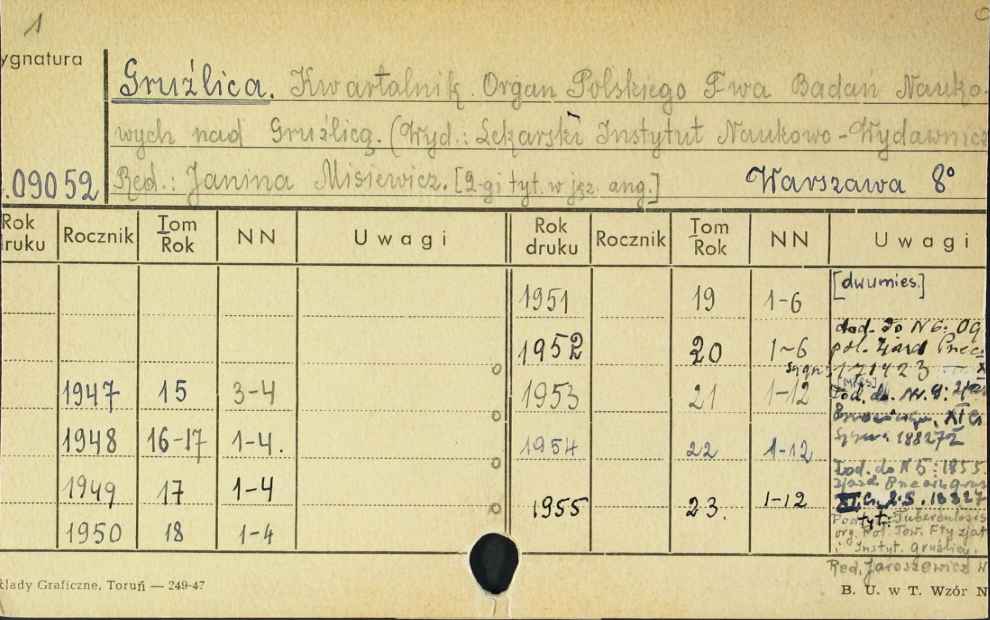 1
ygnatura
Gruźlica. Kwartalnik. Organ Polskiego T-wa Badań Nauko-
wych nad Gruźlicą. (Wyd.: Lekarski Instytut Naukowo-Wydawnicz
.09052 Red.: Janina Misiewicz. [2-gi tyt. w jęz. ang.] Warszawa 8°
Rok druku Rocznik Tom Rok NN Uwagi Rok druku Rocznik Tom Rok NN Uwagi
1951 19 1-6 [dwumies.]
1952 20 1-6 dod. do N 6. Og
pol. Zjazd
Sygn: 171423
1947 15 3-4 1953 21 1-12 [mies]
Dod. do. Nr. 9:
1948 16-17 1-4. 1954 22 1-12 188272
Dod. do N 5: 1855.
1949 17 1-4 1955 23. 1-12 zjazd
1950 18 1-4 tyt. Tuberculosis
org. Pol. Tow. Ftyzjat
i Instyt. gruźlicy.
Red. Jaroszewicz W
kłady Graficzne, Toruń — 249-47 B. U. w T. Wzór N